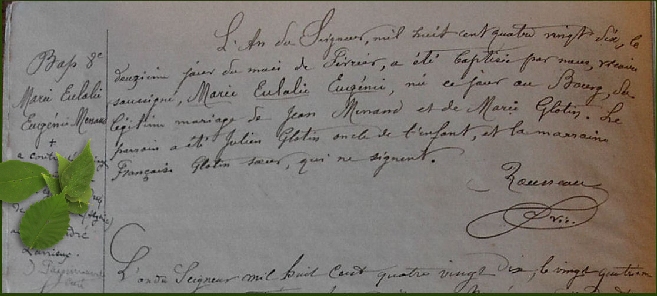 L'An du Seigneur, mil huit cent quatre vingt dix, le
deuzième jour du mois de Février, a été baptisée par nous, vicaire
soussigné, Marie Eulalie Eugénie, né ce jour au Bourg, du
légitime mariage de Jean Menand et de Marie Glotin. Le
parrain a été Julien Glotin oncle de l'enfant, et la marraine
Françoise Glotin sœur, qui ne signent.
Rousseau
Vic.
Bap 8e
Marie Eulalie
Eugénie Menand
+
a contracté
L'an du Seigneur mil huit cent quatre vingt dix, le vingt quatrième